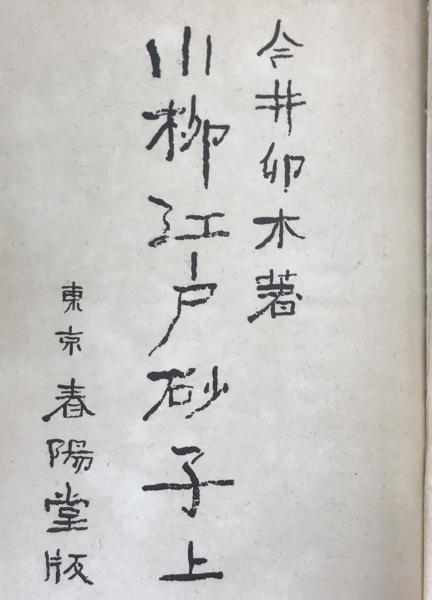 今井卯木著
川柳江戸砂子上
東京春陽堂版